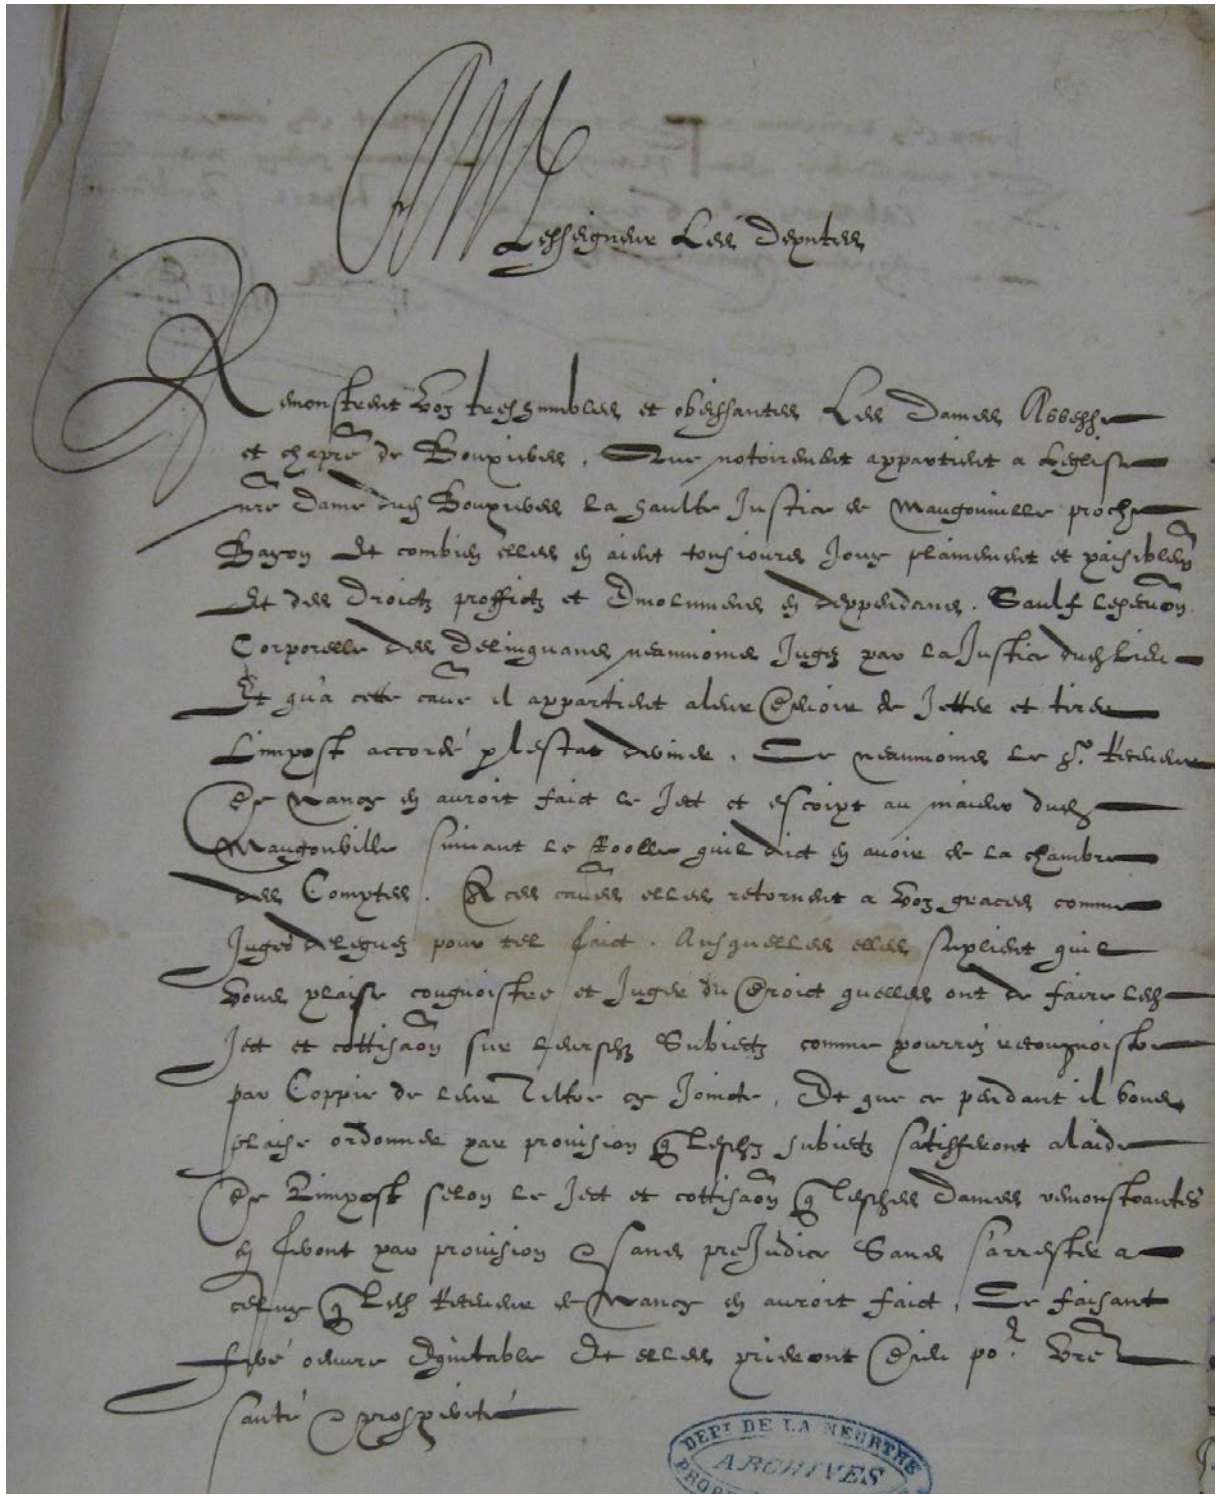 A Messeigneurs Les Deputes
Remonstrent voz treshumbles et obeissantes Les Dames Abbesse
et chapre de Bouxieres, Que notoirement appartient a Leglise
nre Dame dud Bouxieres la haulte Justice de Maugonville proche
Bayon Et combien elles en aient tousjours Jouy plainement et paisiblemt
Et des droictz proffictz et Emolumens en deppendans. Saulf
Corporelle des delinquans neanmoins Jugez par la Justice dud lieu
Et qu'a cette cause il appartient a leur de Jetter et tirer
Limpost accordé p lestat . Ce neanmoins le Sr. Receveur
De Nancy en auroit faict le Ject et escript au maieur dud
Maugonville suivant le Roolle quil dict en avoir de la chambre
des Comptes. A ces causes elles retornent a voz graces comme
Juges deleguez pour tel faict. Ausquelles elles suplient quil
vous plaise congnoistre et Juger du Droict quelles ont de faire lesd
Ject et cottisaon sur leursd Subiectz comme pourrez recongnoistre
par Coppie de leur Tiltre cy Joincte, Et que ce pendant il vous
plaise ordonner par provision q lesd subiectz satisferont a laide
De Limpost selon le Ject et cottisaon q lesd Dames remonstrantes
en feront par provision & sans preJudice Sans s'arrester a
celuy q led Receveur de Nancy en auroit faict, Ce faisant
feré oeuvre Equitable Et elles prieront Dieu por. vre
santé & prosperité
DEPT DE LA MEURTHE
ARCHIVES